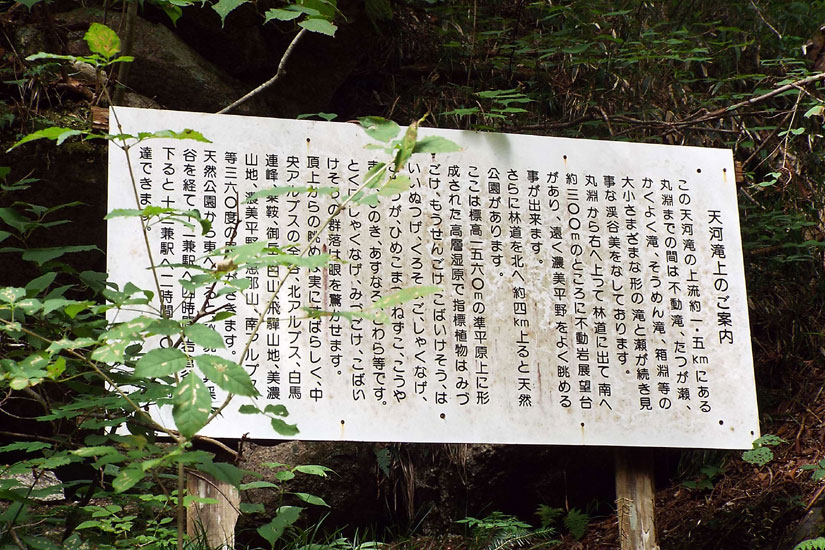 天河滝上のご案内
この天河滝の上流約一・五kmにある
丸淵までの間は不動滝、たつが瀬、
かくよく滝、そうめん滝、箱淵等の
大小さまざまな形の滝と瀬が続き見
事な渓谷美をなしております。
丸淵から右へ上って林道に出て南へ
約三〇〇mのところに不動岩展望台
があり、遠く濃美平野をよく眺める
事が出来ます。
さらに林道を北へ約四km上ると天然
公園があります。
ここは標高一五六〇mの準平原上に形
成された高層湿原で指標植物は、みづ
ごけ、もうせんごけ、こばいけそう、は
いいぬつげ、くろそ ごしゃくなげ、
うつが ひめこま、 ねずこ、こうや
まき ひのき、あすなろ さわら等です。
とくに しゃくなげ、みづごけ、こばい
けそうの群落は眼を驚 せます。
頂上からの眺めは実にすばらしく、中
央アルプスの 北アルプス、白馬
連峰、乗鞍、御岳 白山、飛騨山地、美濃
山地、濃美平野 恵那山、南アルプス
等三六〇度の きます。
天然公園から東へ 秘境
谷を経て 二兼駅へ 時間
下ると十二兼駅へ二時間
達できます。